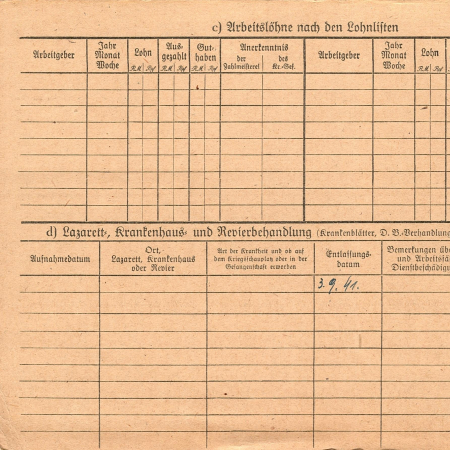 c) Arbeitslöhne nach den Lohnlisten
Arbeitgeber Jahr Monat Woche Lohn Ausgezahlt Guthaben Anerkenntnis Arbeitgeber Jahr Monat Woche Lohn
der Zahlmeisterei des Kr.-Gef.
RM Rpf RM Rpf RM Rpf RM Rpf
d) Lazarett-, Krankenhaus- und Revierbehandlung (Krankenblätter, D. B.-Verhandlung
Aufnahmedatum Ort, Lazarett, Krankenhaus oder Revier Art der Krankheit und ob auf dem Kriegsschauplatz oder in der Gefangenschaft erworben Entlassungsdatum Bemerkungen übe und Arbeitsfä Dienstbeschädigu
3.9.41.